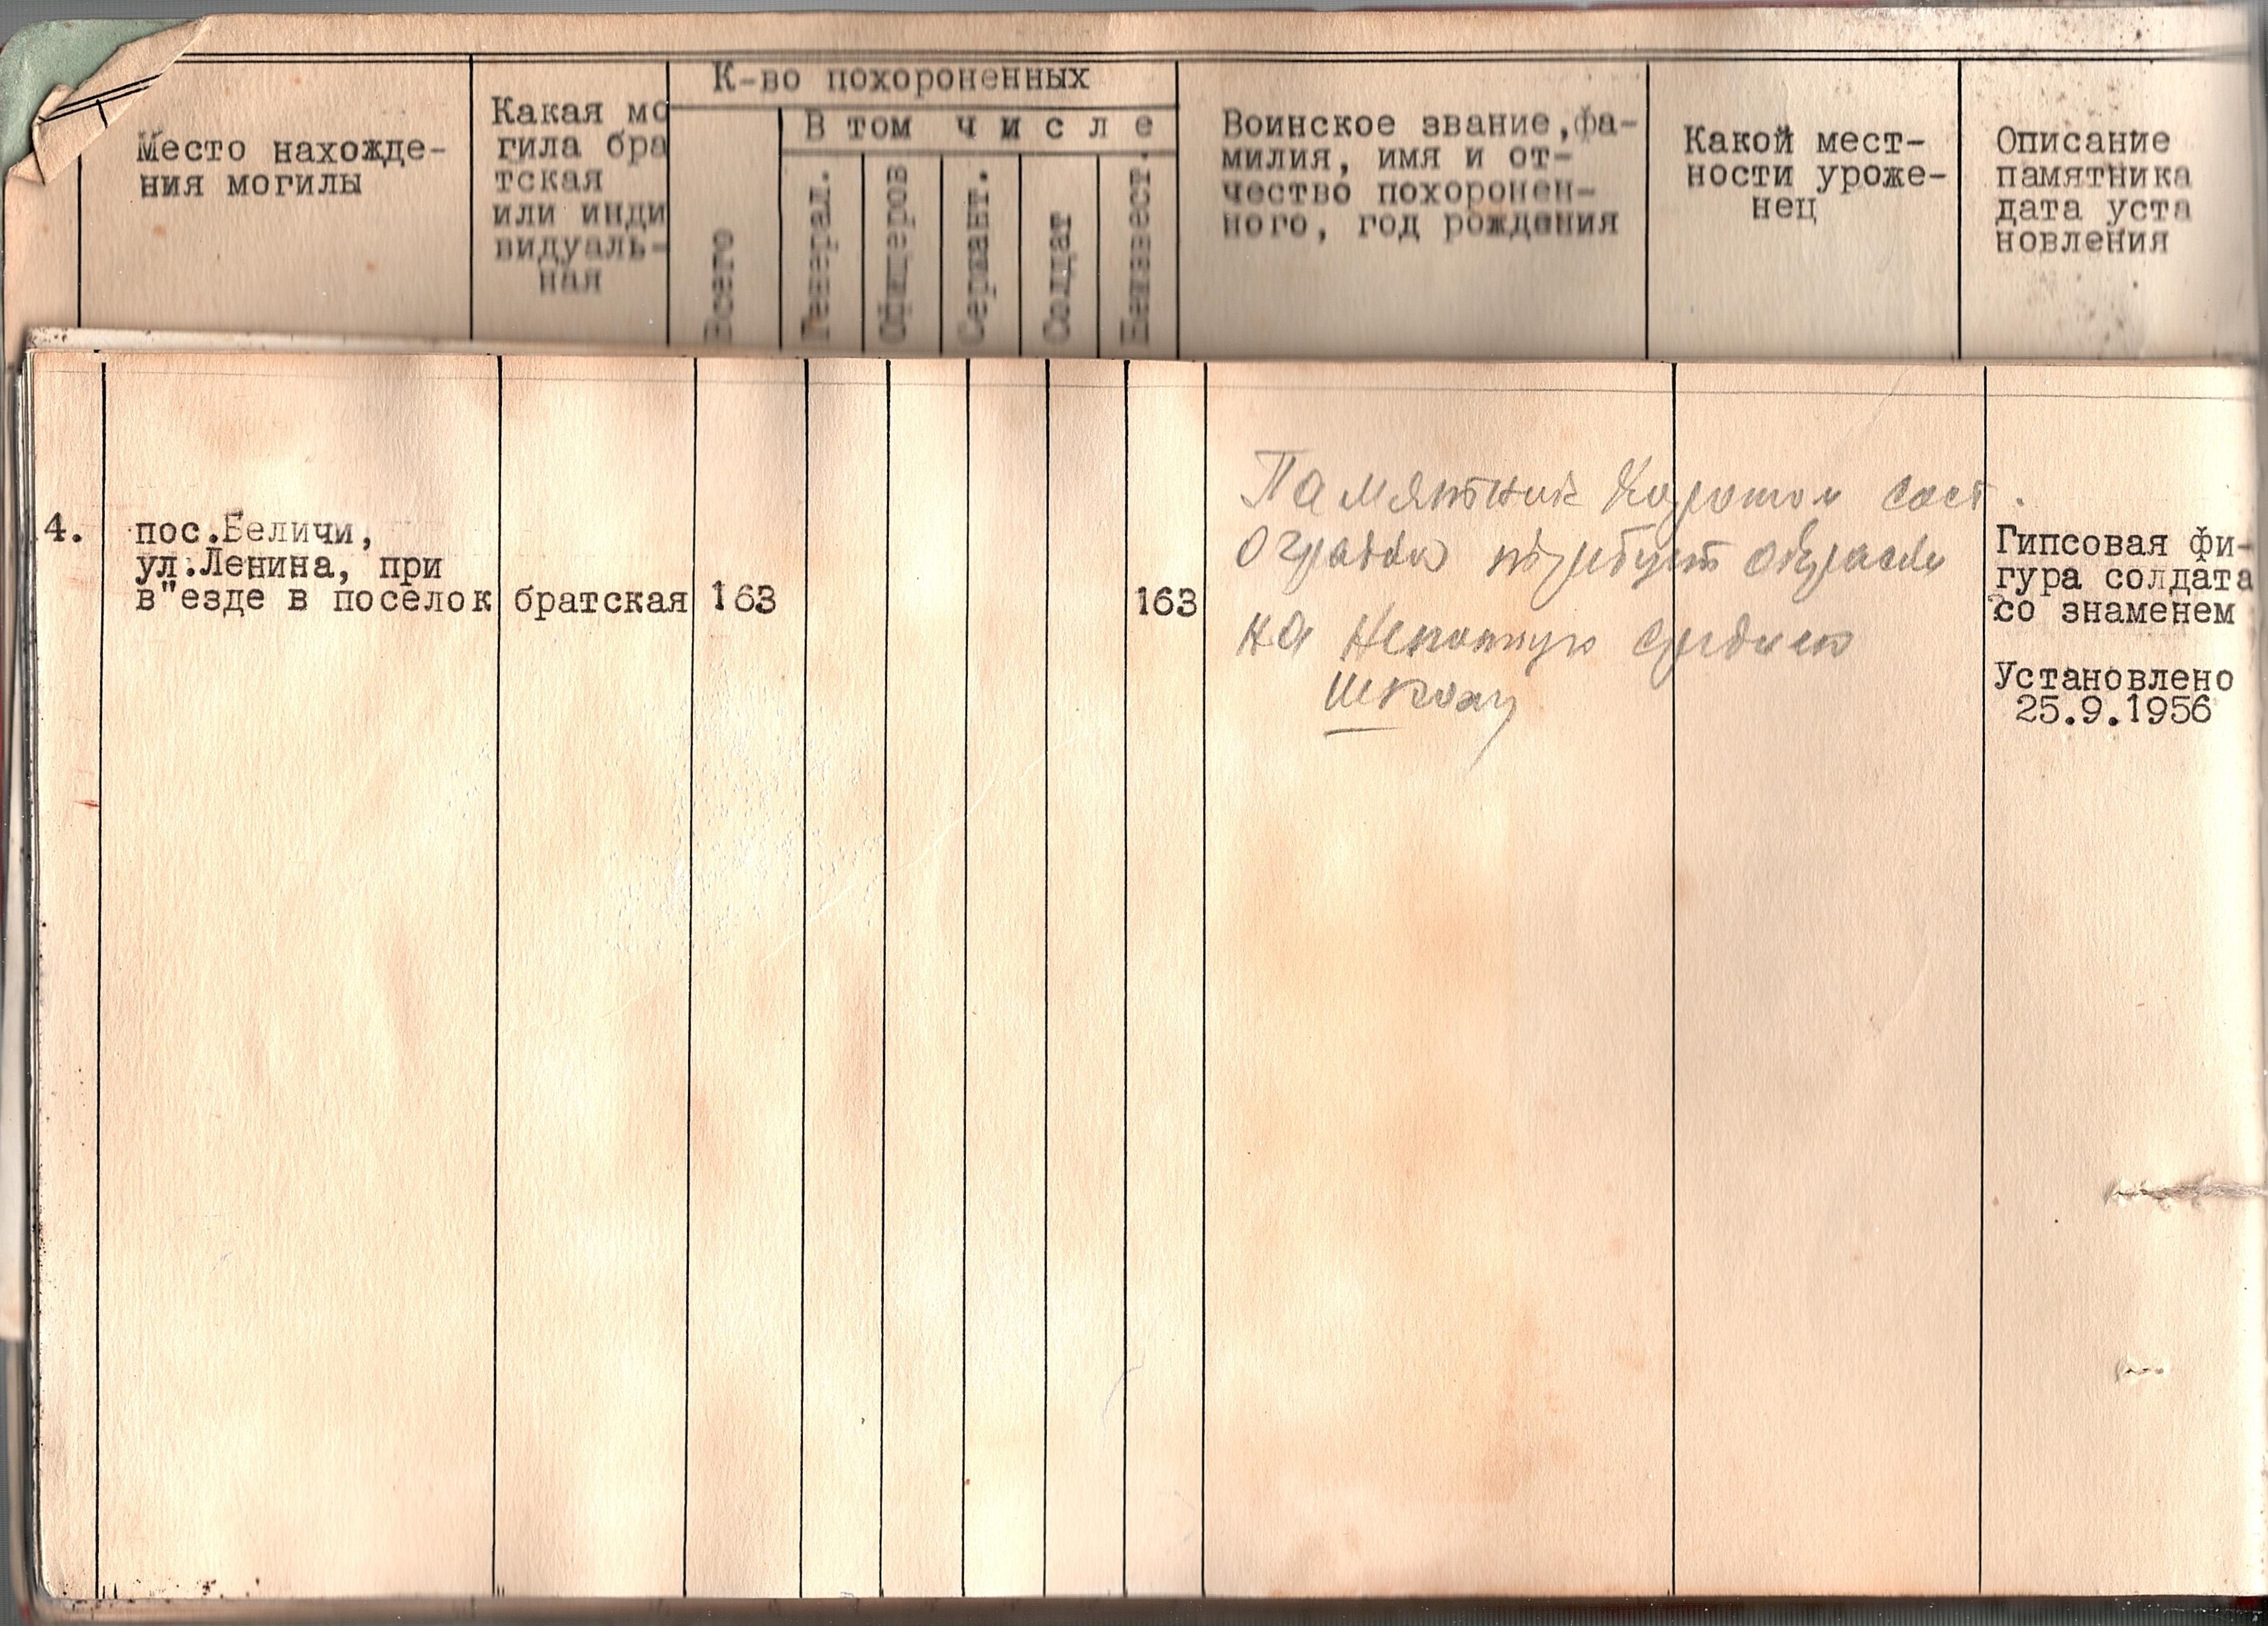 К-во похороненных
В том числе
Место нахожде-
ния могилы
Какая мо
гила бра
тская
или инди
видуаль-
ная
Всего
Генерал.
Офицеров
Сержант.
Солдат
Неизвест.
Воинское звание,фа-
милия, имя и от-
чество похоронен-
ного, год рождения
Какой мест-
ности уроже-
нец
Описание
памятника
дата уста
новления
4.
пос.Беличи,
ул.Ленина, при
в"езде в поселок
братская
163
163
Памятник хорошом сост.
Ограда требует окраски
на неполную среднюю
школу
Гипсовая фи-
гура солдата
со знаменем
Установлено
25.9.1956